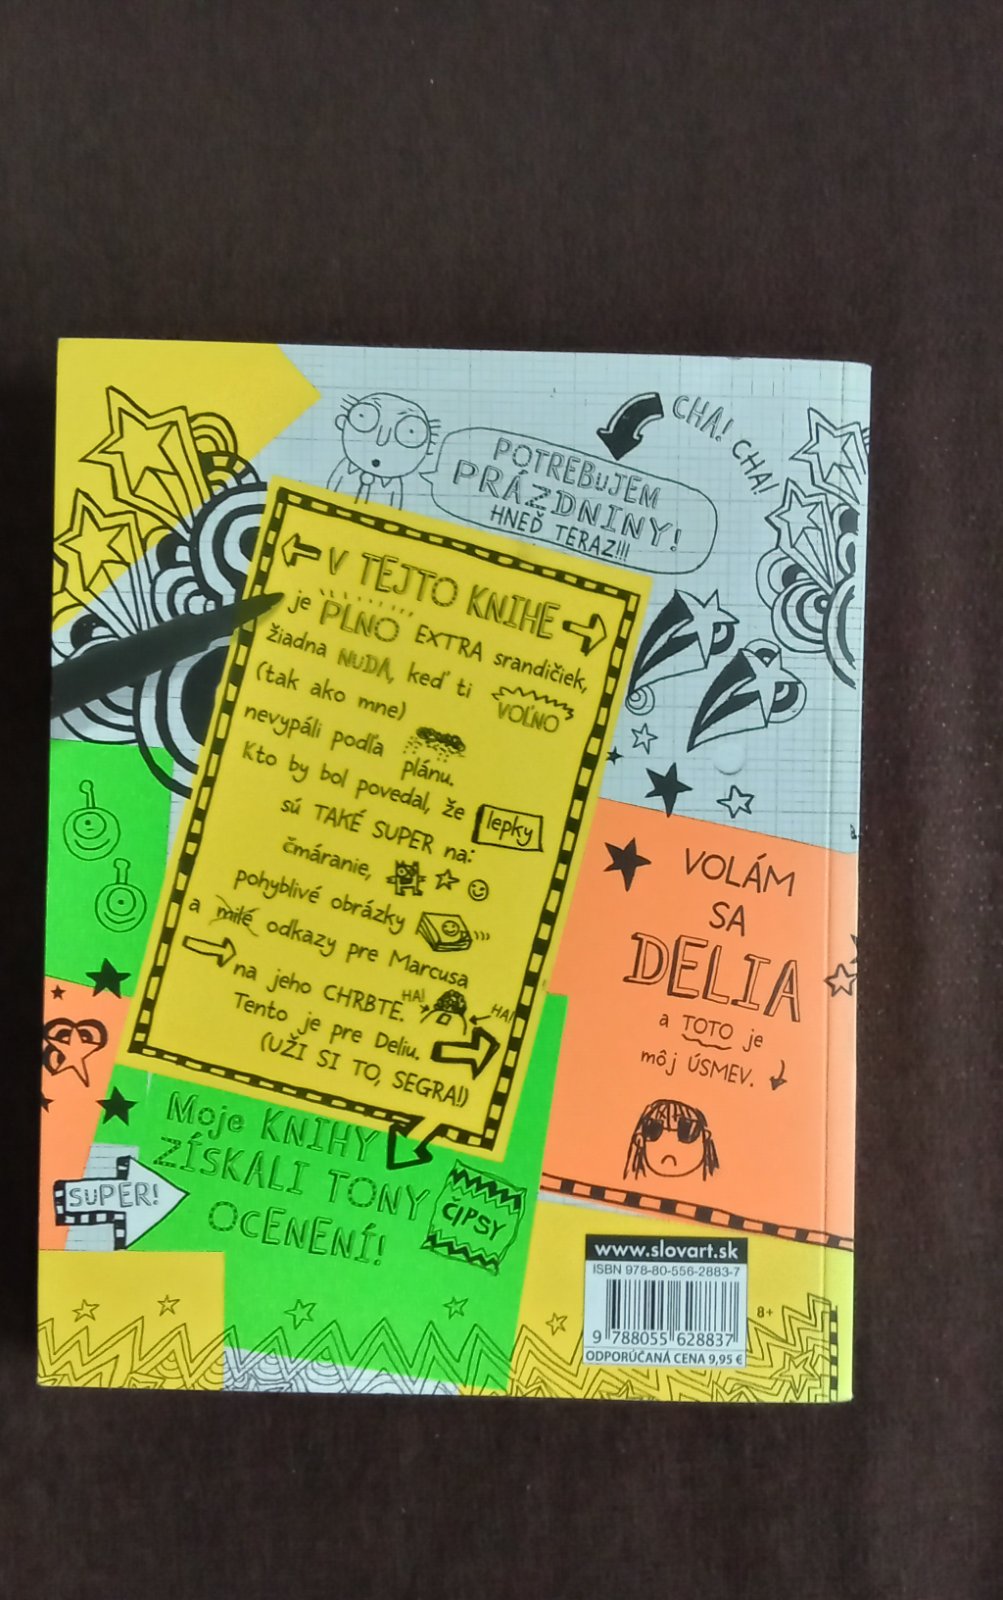 CHA! CHA!
POTREBUJEM
PRÁZDNINY!
HNEĎ TERAZ!!!
V TEJTO KNIHE
je PLNO EXTRA srandičiek,
žiadna NUDA, keď ti VOĽNO
(tak ako mne)
nevypáli podľa plánu.
Kto by bol povedal, že lepky
sú TAKÉ SUPER na:
čmáranie,
pohyblivé obrázky
a milé odkazy pre Marcusa
na jeho CHRBTE. HA! HA!
Tento je pre Deliu.
(UŽI SI TO, SEGRA!)
VOLÁM
SA
DELIA
a TOTO je
môj ÚSMEV.
Moje KNIHY
ZÍSKALI TONY
OCENENÍ!
SUPER!
ČIPSY
www.slovart.sk
ISBN 978-80-556-2883-7
9 788055 628837
ODPORÚČANÁ CENA 9,95 €
8+